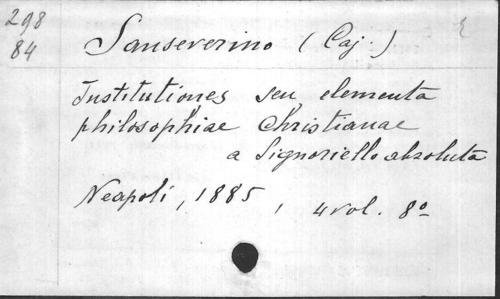 298
84
Sanseverino (Caj.)
Institutiones seu elementa
philosophiae Christianae
a Signoriello absoluta
Neapoli, 1885, 4 vol. 8º